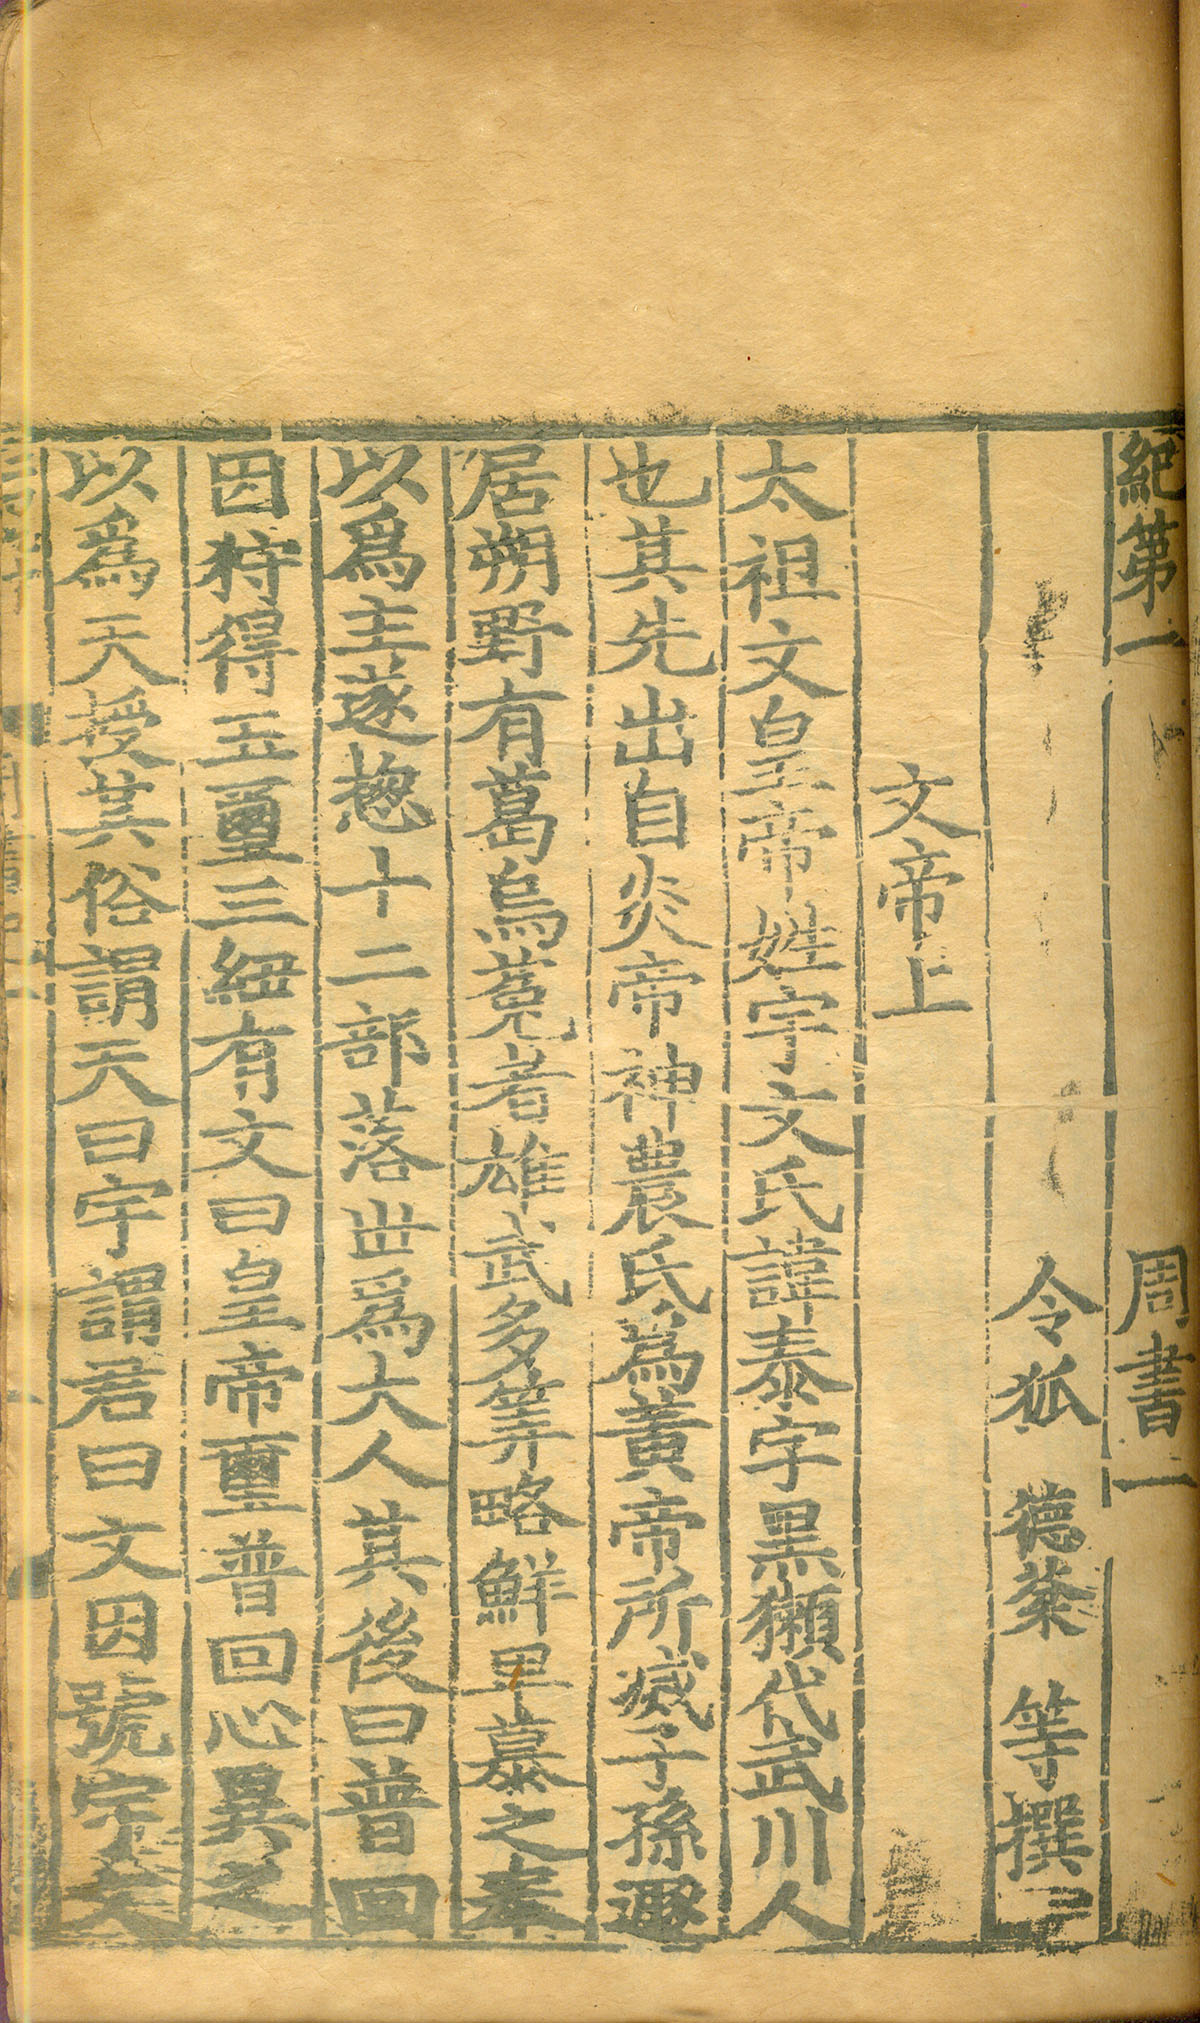 紀第一 周書一
令狐 德棻 等撰
文帝上
太祖文皇帝姓宇文氏諱泰字黑獺代武川人
也其先出自炎帝神農氏為黃帝所滅子孫遯
居朔野有葛烏菟者雄武多筭略鮮卑慕之奉
以爲主遂揔十二部落世爲大人其後曰普回
因狩得玉璽三紐有文曰皇帝璽普回心異之
以爲天授其俗謂天曰宇謂君曰文因號宇文